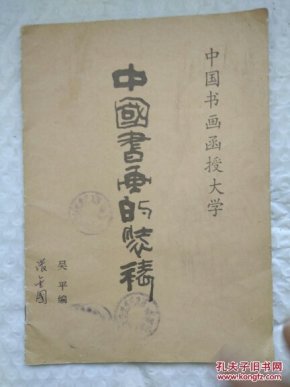 中国书画函授大学
中國書画的装裱
吴平编
孔夫子旧书网